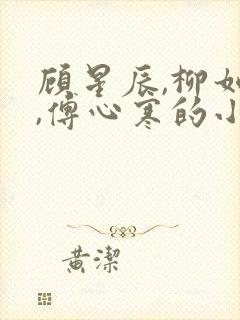 顾星辰,柳如
,傅心寒的小
黄洁